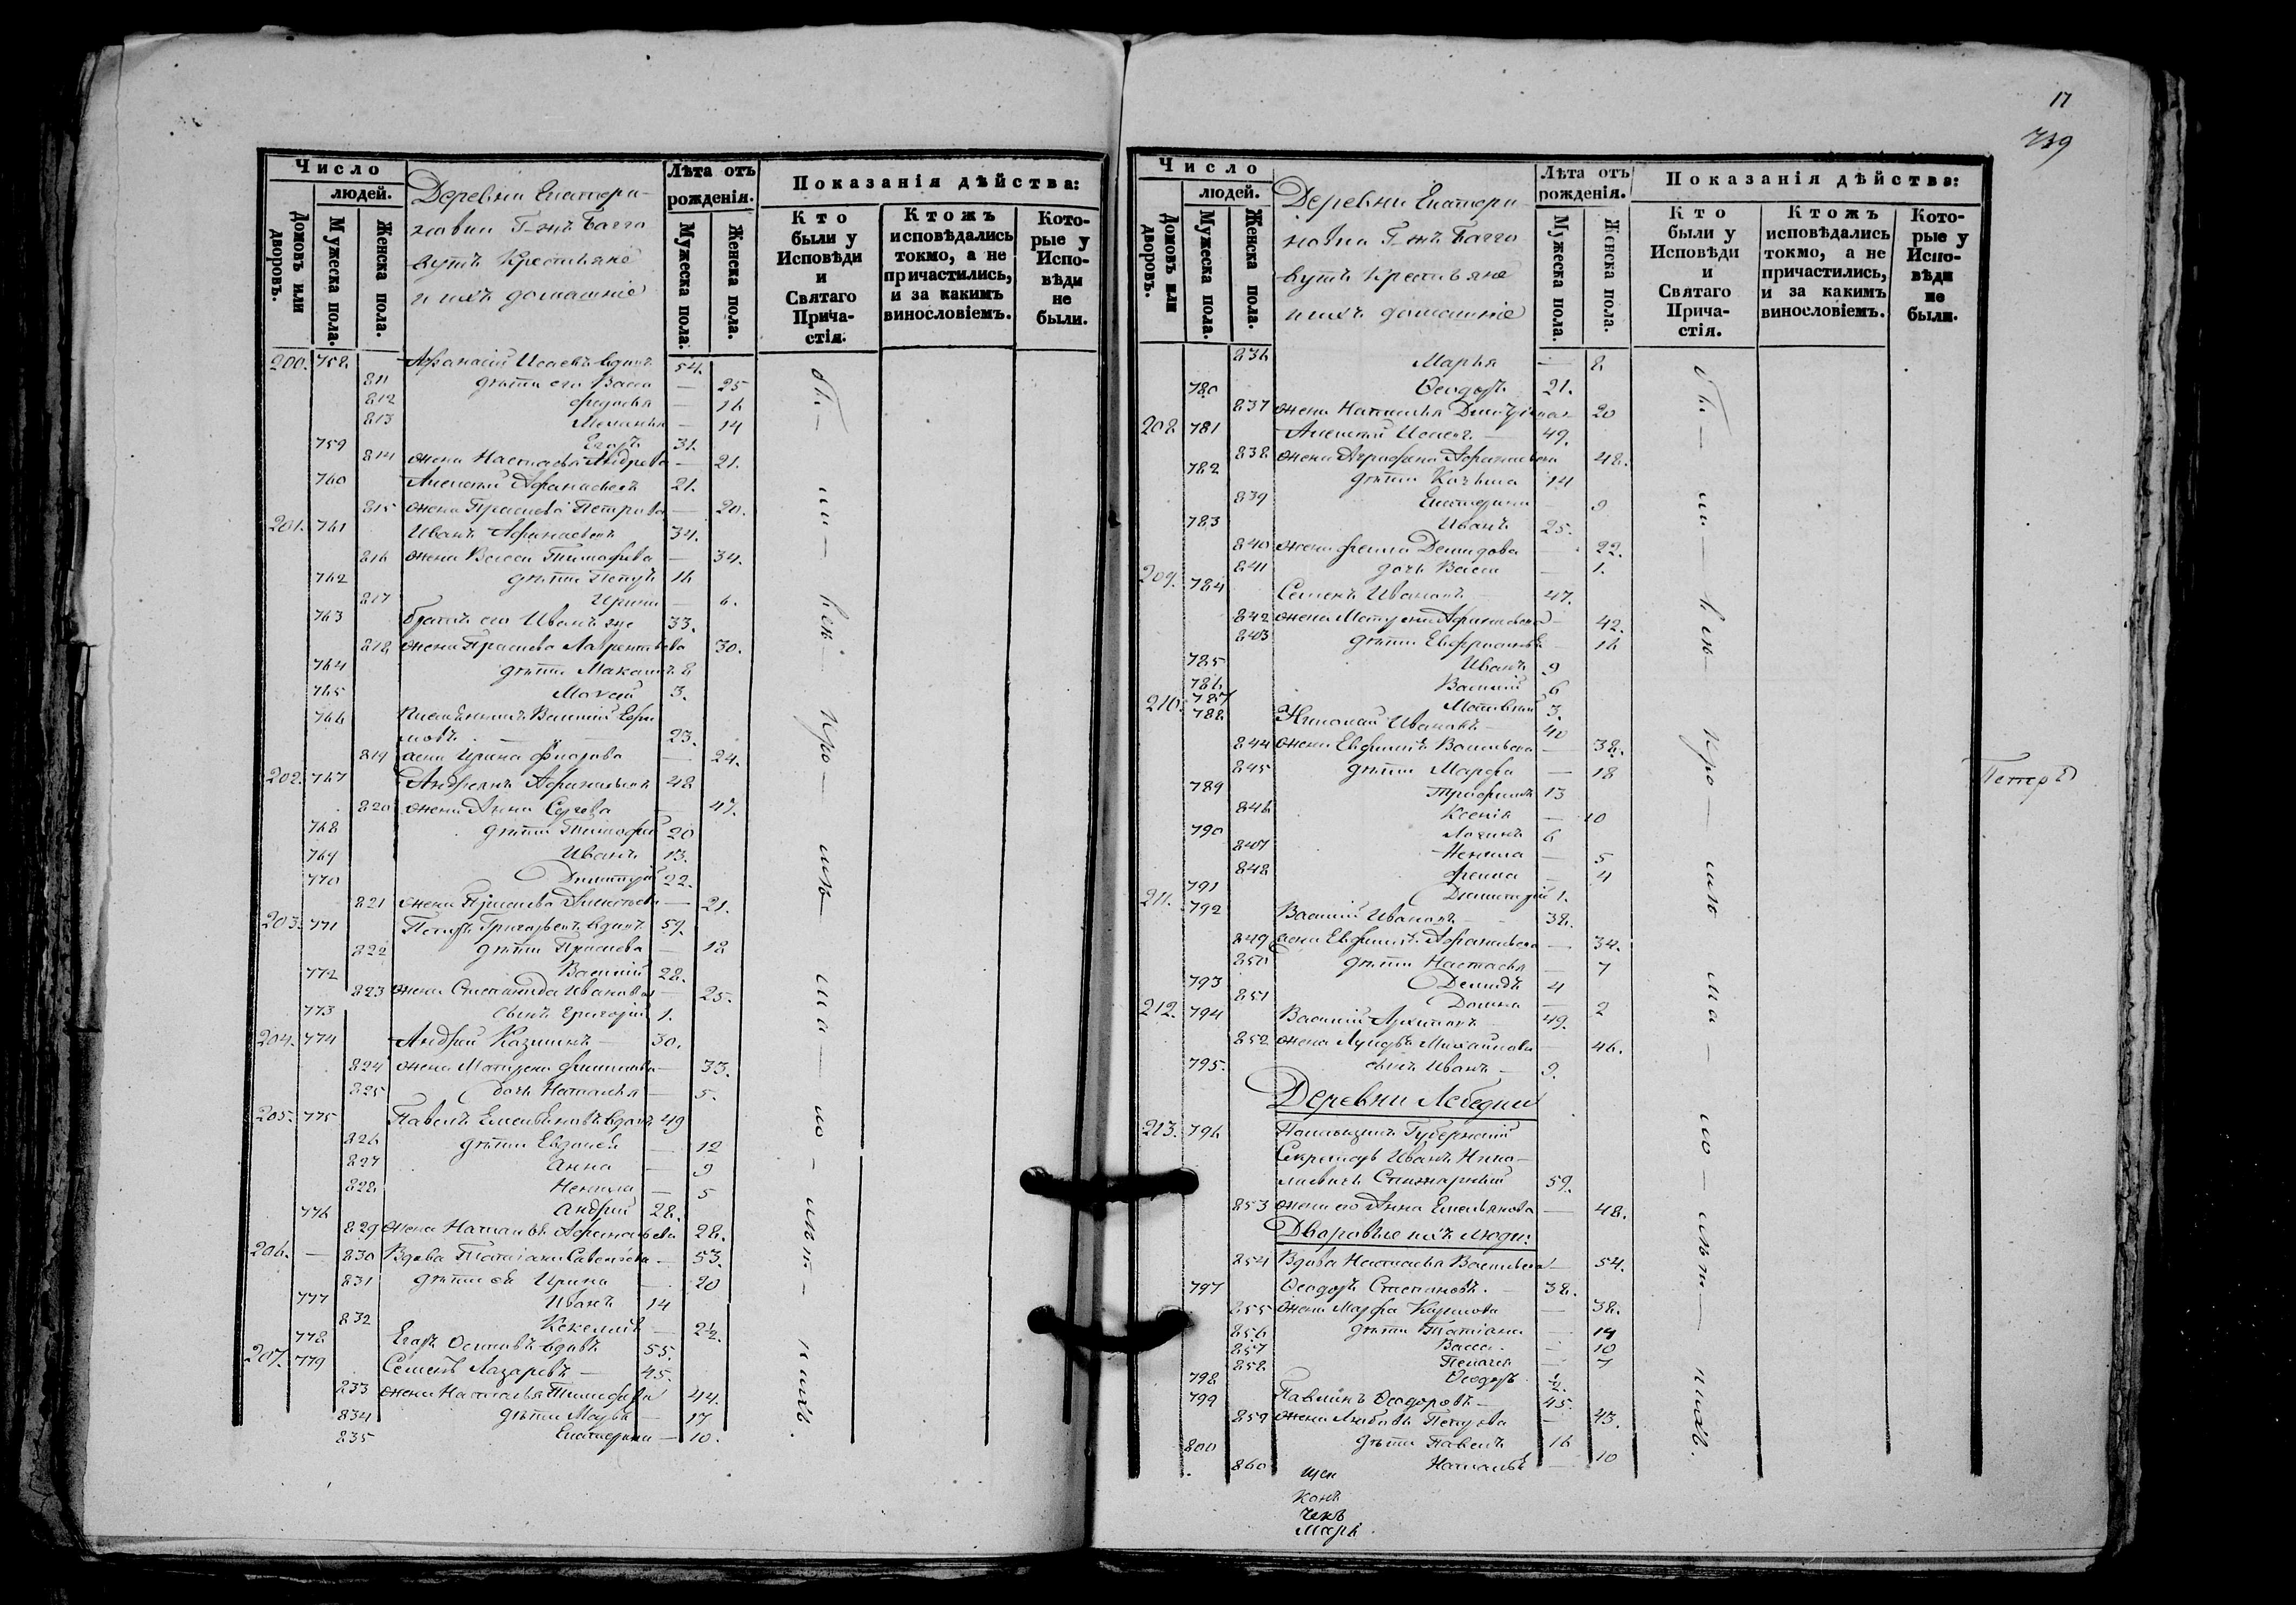 Число
людей.
Домовъ или дворовъ.
Мужеска пола.
Женска пола.
Деревни Екатери-
новки Г-жъ Багго
вутъ Крестьяне
и ихъ домашніе
Лѣта отъ рожденія.
Мужеска пола.
Женска пола.
Показанія дѣйства:
Кто были у Исповѣди и Святаго Прича-стія.
Ктожъ исповѣдались токмо, а не причастились, и за какимъ винословіемъ.
Кото-рые у Испо-вѣди не были.
200. 758. Афанасій Исаевъ вдовъ 54.
811 дѣти его Васса — 25
812 Федосья — 16
813 Меланья — 14
759 Егоръ 31.
814 жена Настасья Андреева — 21.
760 Алексѣй Афанасьевъ 21.
815 жена Прасковья Петрова — 20.
201. 761 Иванъ Афанасьевъ 34.
816 жена Васса Тимофѣева — 34.
762 дѣти Петръ 16
817 Ирина — 6.
763 братъ его Иванъ же 33.
818 жена Прасковья Лаврентьева 30.
764 дѣти Максимъ 8
765 Мокей 3.
766 Василій Ефи
мовъ 23.
819 жена Ирина — 24.
202. 767 Андреянъ Афанасьевъ 48
820 жена Анна Сергѣева — 47.
768 дѣти Тимофей 20
769 Иванъ 13.
770 Димитрій 22.
821 жена Прасковья — 21.
203. 771 Петръ Григорьевъ вдовъ 59.
822 дѣти Прасковья — 18
772 Василій 28.
823 жена Степанида Иванова — 25.
773 сынъ Григорій 1.
204. 774 Андрей Казминъ — 30.
824 жена Матрена Филипова — 33.
825 дочь Наталья — 5.
205. 775 Павелъ Емельяновъ вдовъ 49
826 дѣти Евдокея — 12
827 Анна — 9
828 Ненила — 5
776 Андрей 28.
829 жена Наталья Афанасьева 28.
206. — 830 Вдова Татіана Савельева — 53.
831 дѣти ея Ирина — 20
777 Иванъ 14
832 — 2½.
778 Егоръ Осиповъ вдовъ 55.
207. 779 Семенъ Лазаревъ — 45.
833 жена Наталья Тимофѣева 44.
834 дѣти Марья — 17
835 Екатерина — 10.
17
739
Число
людей.
Домовъ или дворовъ.
Мужеска пола.
Женска пола.
Деревни Екатери
новки Г-жъ Багго
вутъ Крестьяне
и ихъ домашніе
Лѣта отъ рожденія.
Мужеска пола.
Женска пола.
Показанія дѣйства:
Кто были у Исповѣди и Святаго Прича-стія.
Ктожъ исповѣдались токмо, а не причастились, и за какимъ винословіемъ.
Кото-рые у Испо-вѣди не были.
836 Марья — 8
780 Ѳеодоръ 21.
837 жена Наталья Дмитріева 20
208 781 Алексѣй Исаевъ — 49.
838 жена Аграфена Афанасьева 48.
782 дѣти Козьма 14
839 Екатерина 9
783 Иванъ 25.
840 жена Фекла Демидова — 22.
841 дочь Васса — 1.
209. 784 Семенъ Ивановъ — 47.
842 жена Матрена Афанасьева — 42.
843 дѣти 16
785 Иванъ 9
786 Василій 6
787 Матвѣй 3.
210. 788 Николай Ивановъ — 40
844 жена Евфимія Васильева — 38.
845 дѣти Марфа — 18
789 Трофимъ 13
846 Ксенія — 10
790 Логинъ 6
847 Ненила — 5
848 Фекла — 4
791 Димитрій 1.
211. 792 Василій Ивановъ — 38.
849 жена Евфимія Афанасьева — 34.
850 дѣти Настасья — 7
793 Демидъ 4
851 Домна — 2
212. 794 Василій Архиповъ — 49.
852 жена Михайлова — 46.
795. сынъ Иванъ — 9.
Деревни Лебедки
213. 796 Помѣщикъ Губернскій
Секретарь Иванъ Нико-
лаевичъ 59.
853 жена его Анна Емельянова — 48.
Дворовые ихъ люди:
854 Вдова Настасья Васильева — 54.
797 Ѳеодоръ Степановъ. — 38.
855 жена Марфа Кирилова — 38.
856 дѣти Татіана — 14
857 Васса — 10
858 Пелагея — 7
798 Ѳеодоръ ½.
799 Ѳеодоровъ — 45.
859 жена Любовь Петрова — 43.
800 дѣти Павелъ 16
860 Наталья — 10